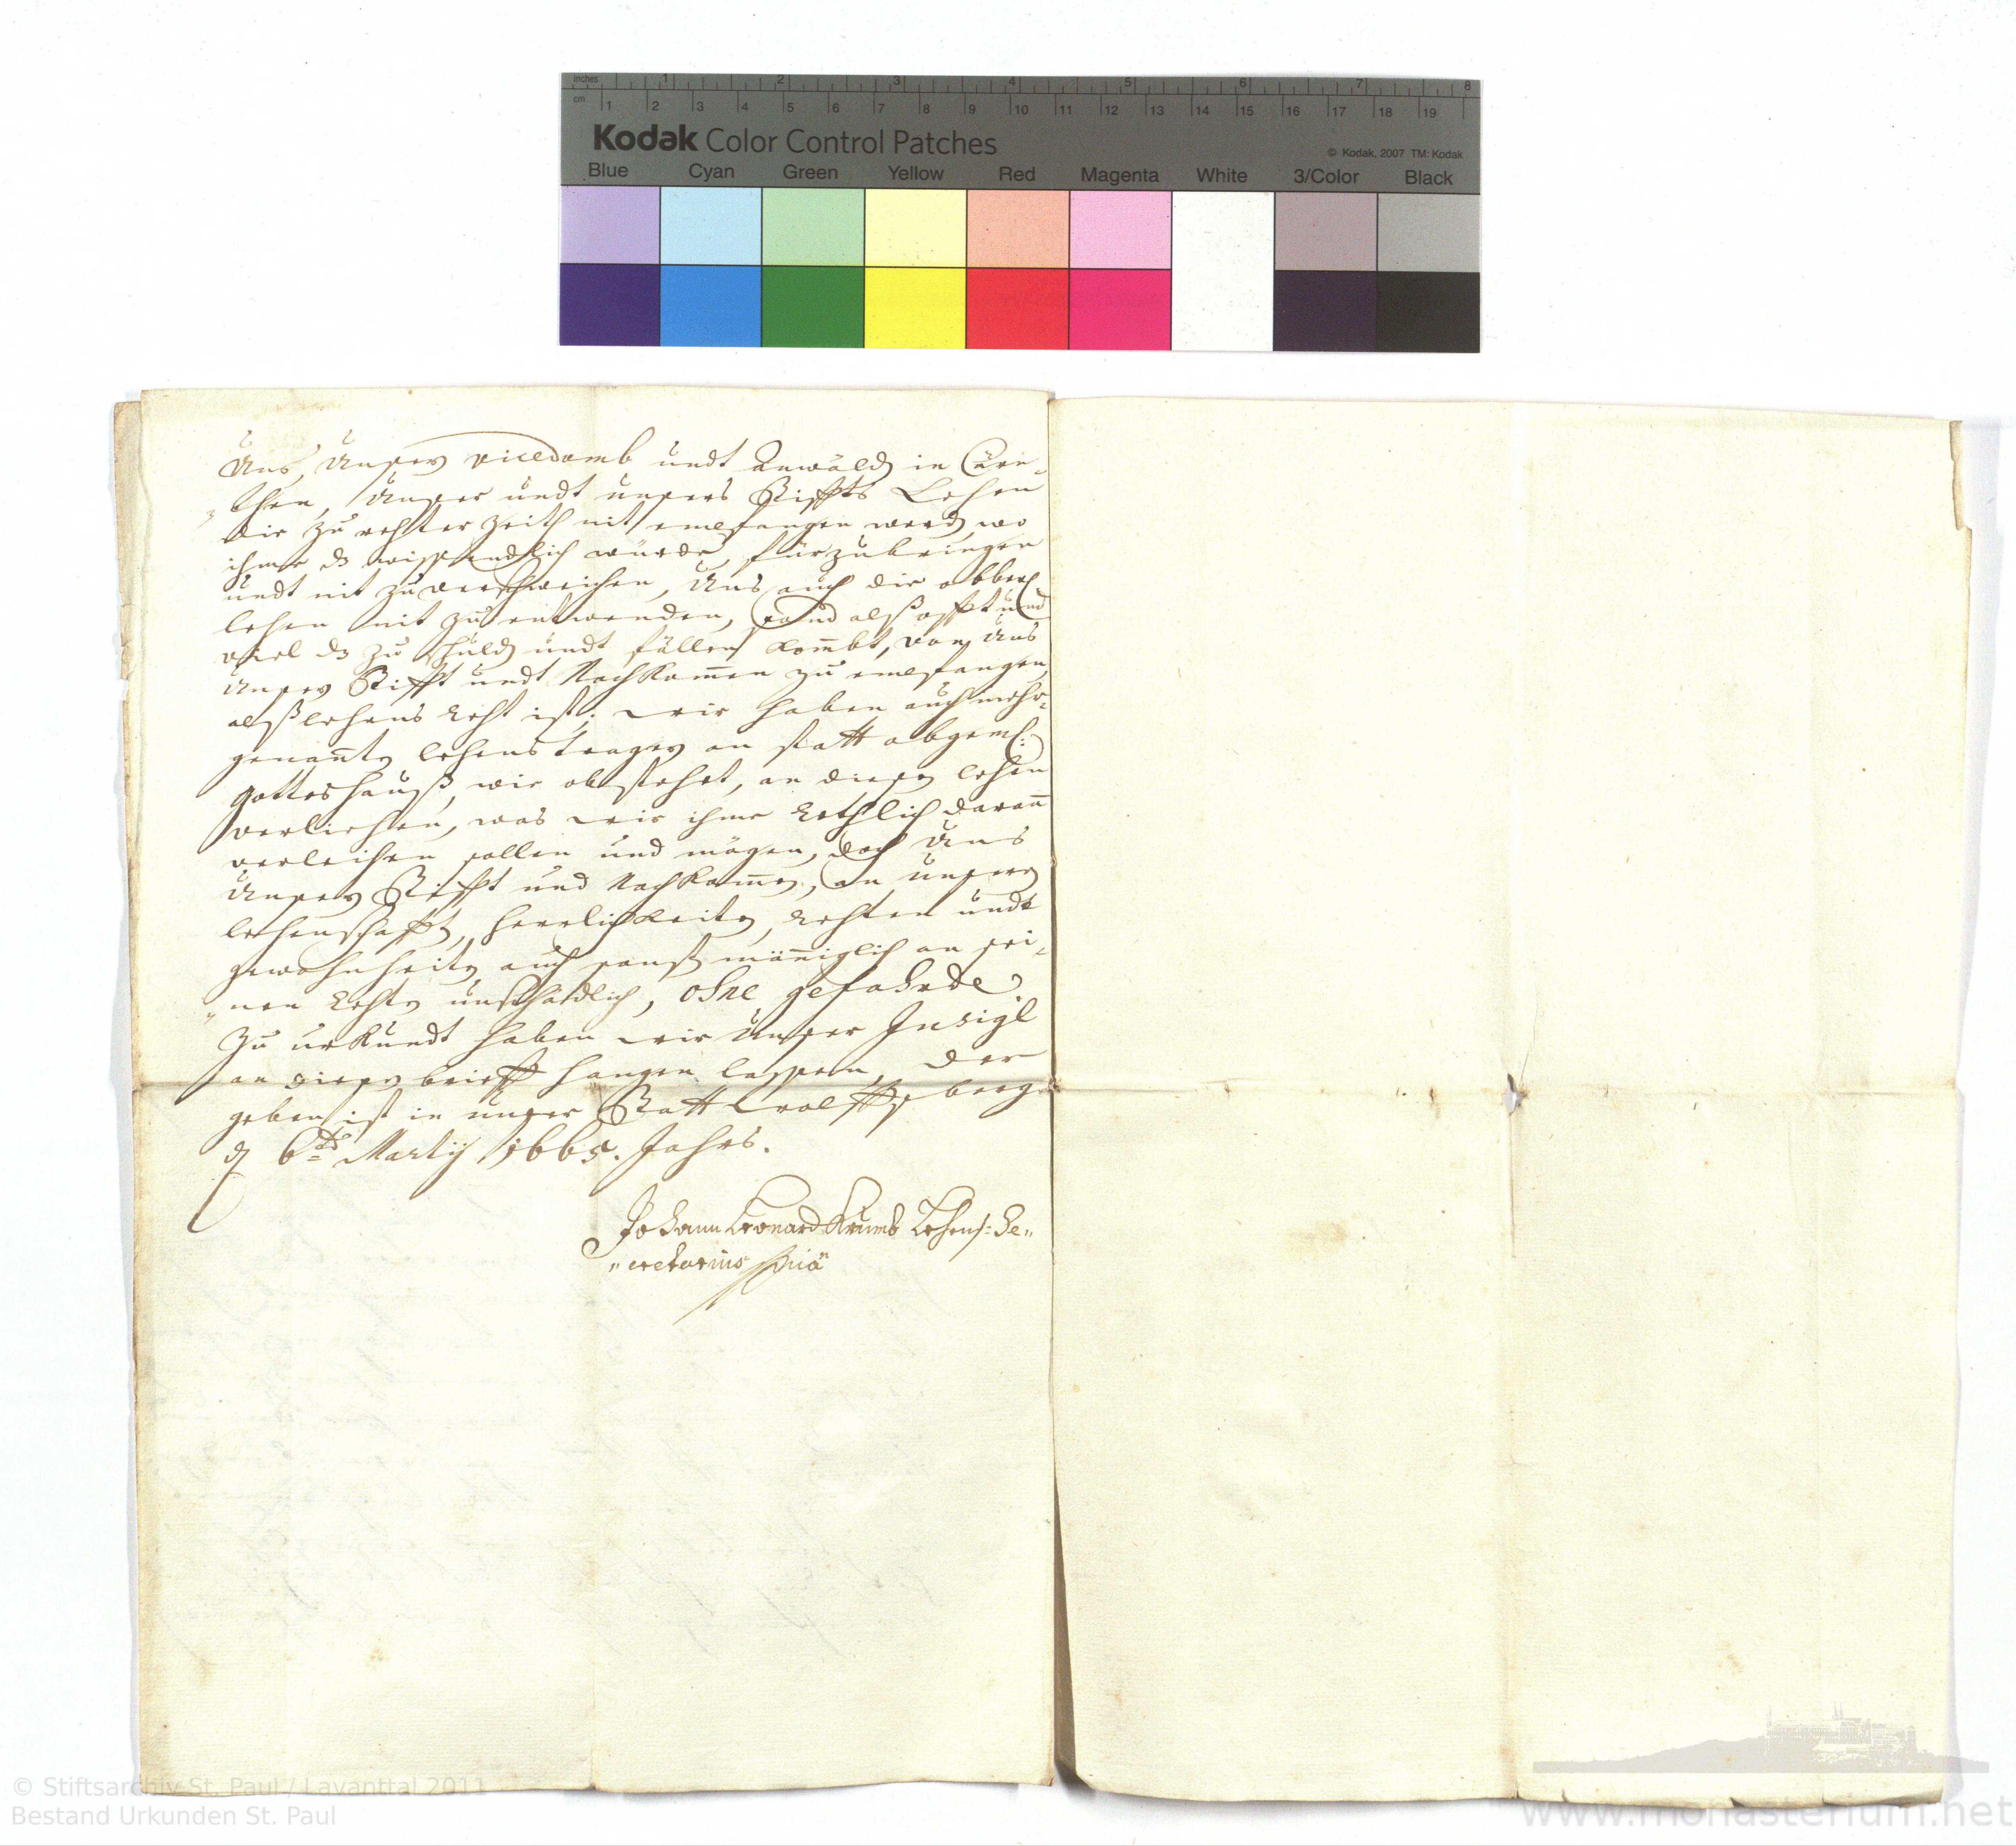 inches 1 2 3 4 5 6 7 8
cm 1 2 3 4 5 6 7 8 9 10 11 12 13 14 15 16 17 18 19
Kodak Color Control Patches
© Kodak, 2007 TM: Kodak
Blue Cyan Green Yellow Red Magenta White 3/Color Black
Uns, Unsern vicedomb undt Anwäld in Cärn-
then, Unser undt unsers Stiffts Lehen
die zu rechter Zeith nit empfangen werd, wo
ihme dz wissendlich würde, fürzubringen
undt nit zuverschweichen, Uns auch die obber
lehen nit zu entwenden, sond alß offt und
viel dz zu schuld undt fällen kombt, von Uns
Unsern Stifft undt Nachkomen zu empfangen
alß lehens Recht ist; wir haben auch mehr-
genanten lehenstrager an statt obgeml:
gotteshauß, wie obstehet, an diesen lehen
verliehen, was wir ihme Rechtlich daran
verleihen sollen und mögen, doch Uns
Unsern Stifft und Nachkomen, an unsern
lehenschafft, herrlichkeiten, Rechten undt
gewohnheiten auch sonst mäniglich an sei-
nen Rechten unschädlich, ohne gefahrde
Zu urkundt haben wir Unser Insigl
an diesen brieff hangen lassen, der
geben ist in unser Statt Wolffsberg
d 6ten Martij 1665. Jahrs.
Johann Leonard Krumb Lehens: Se-
cretarius mpia
© Stiftsarchiv St. Paul / Lavanttal 2011
Bestand Urkunden St. Paul
www.monasterium.net